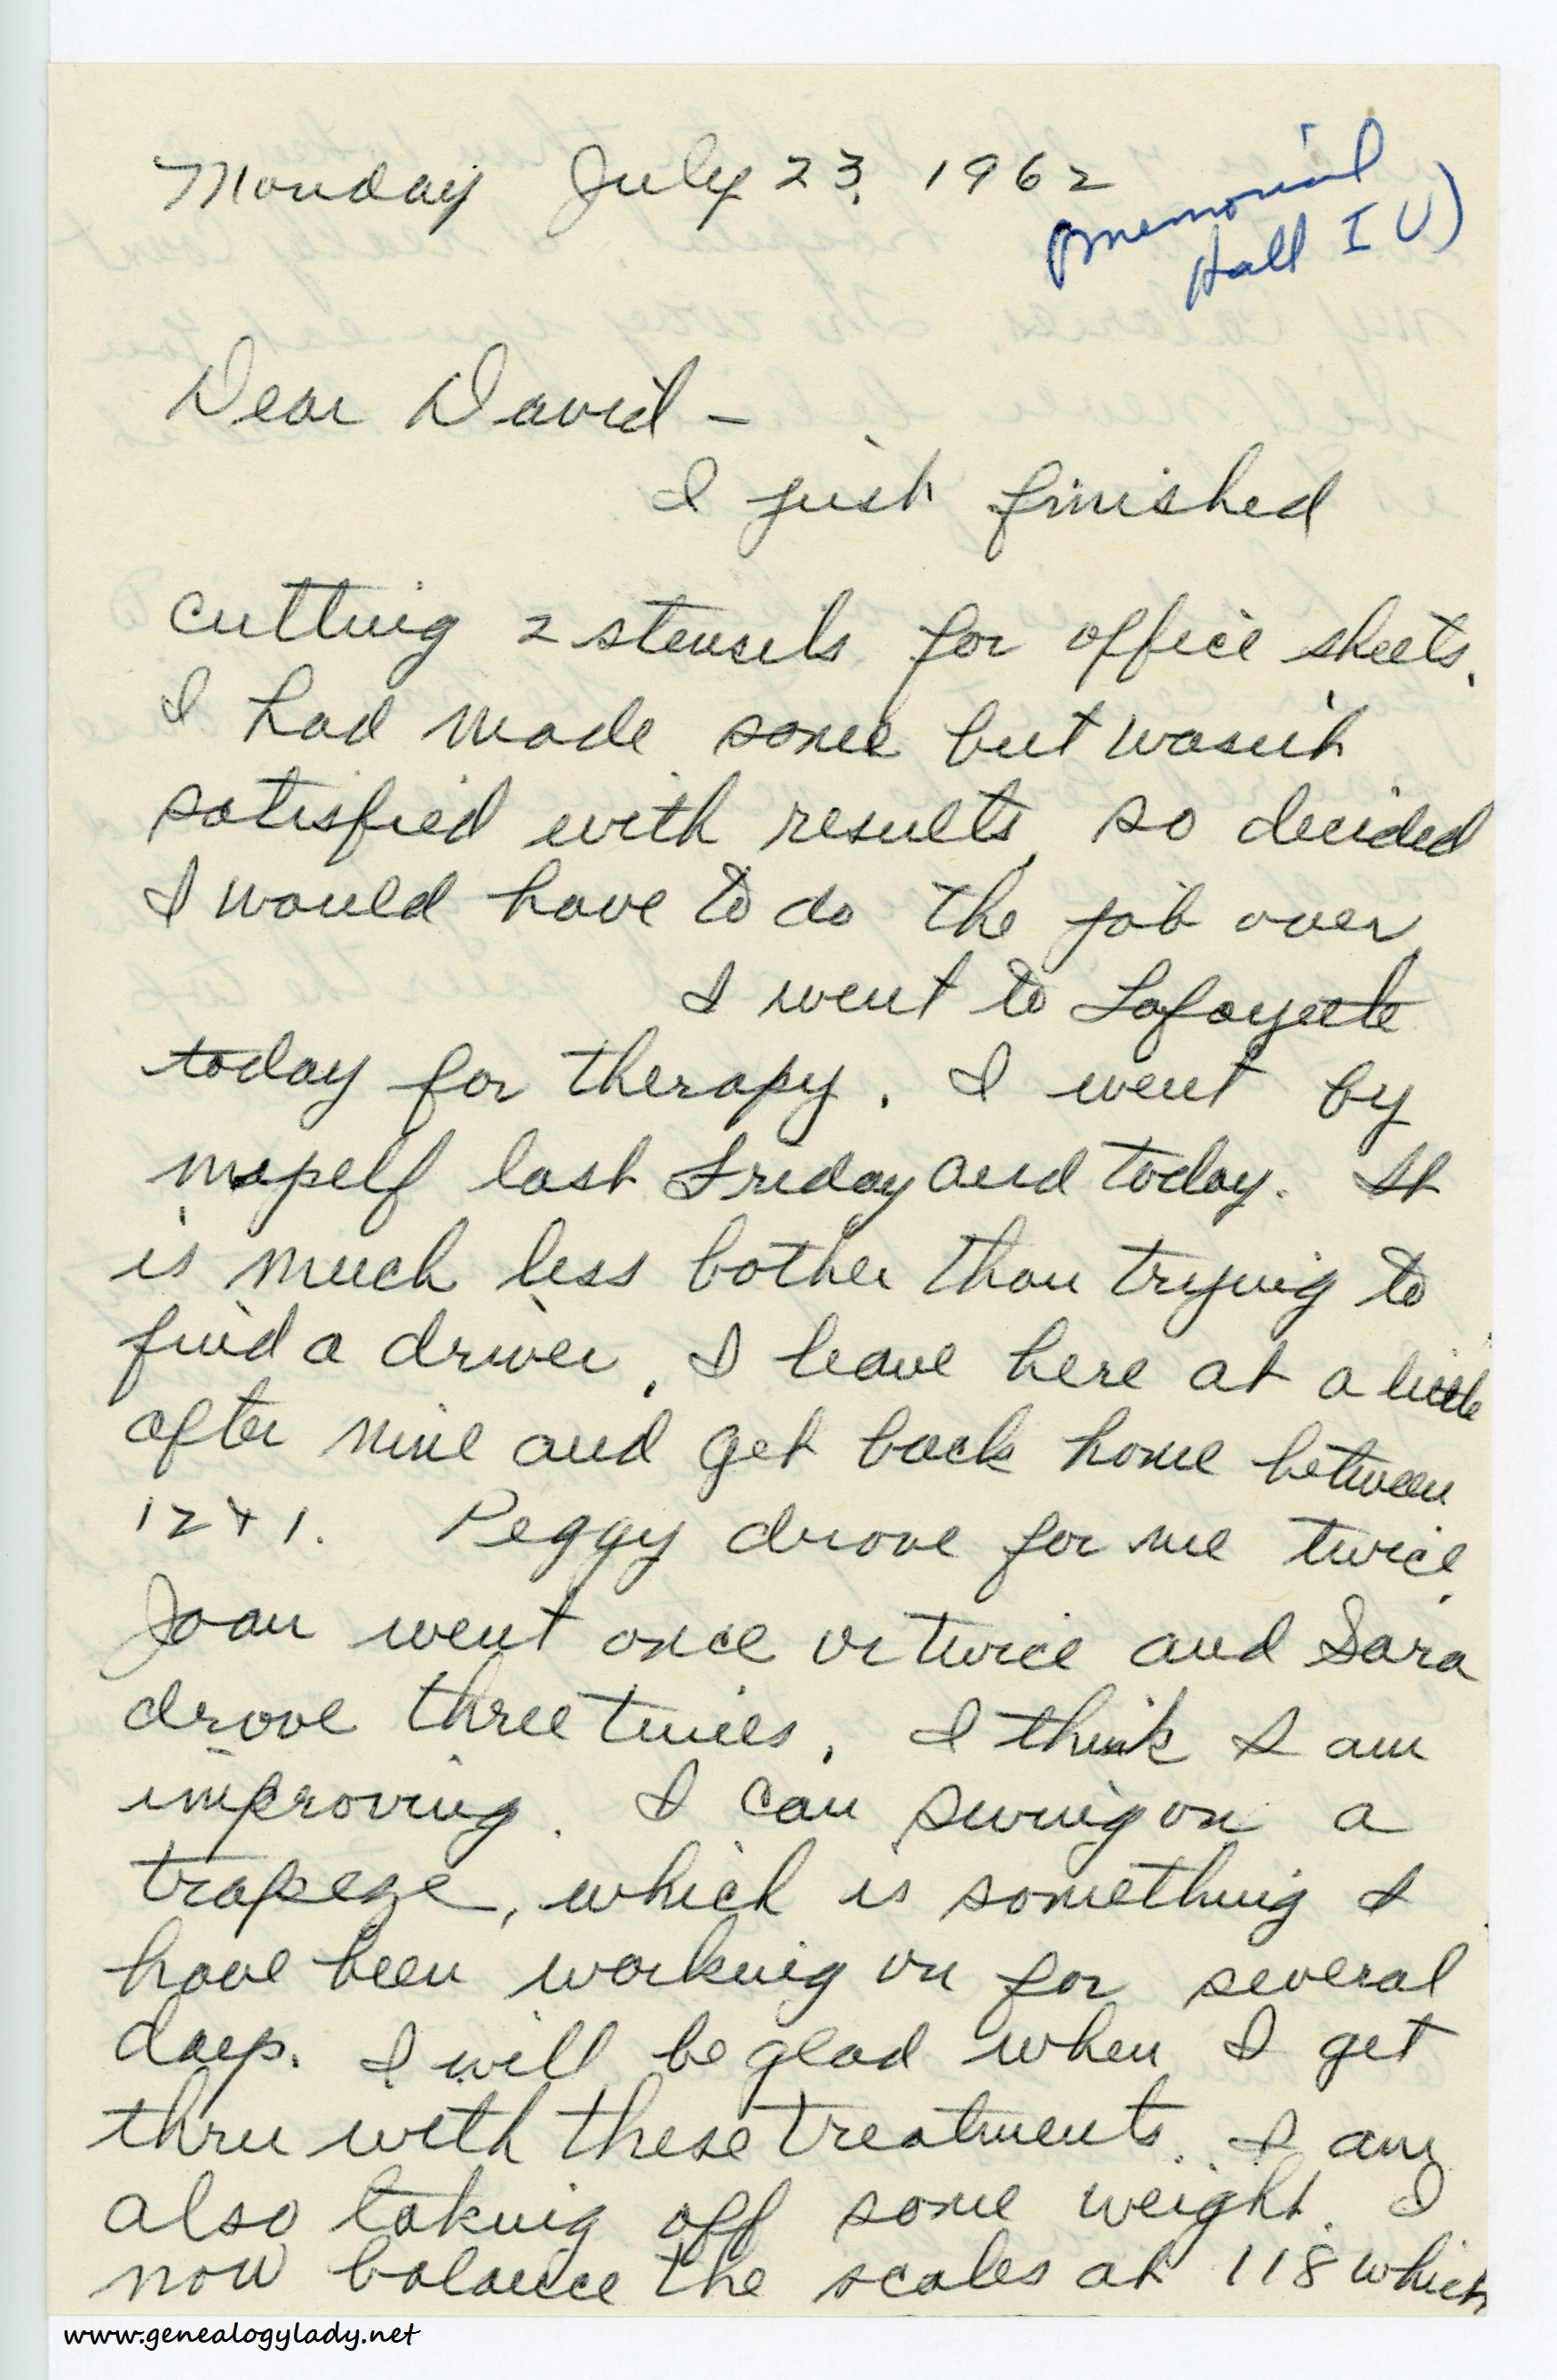 Monday July 23, 1962
(Memorial
Hall I U)
Dear David -
I just finished
cutting 2 stencils for office sheets.
I had made some but wasn't
satisfied with results, so decided
I would have to do the job over.
I went to Lafayette
today for therapy. I went by
myself last Friday and today. It
is much less bother than trying to
find a driver. I leave here at a little
after nine and get back home between
12 + 1. Peggy drove for me twice.
Joan went once or twice and Sara
drove three times. I think I am
improving. I can swing on a
trapeze, which is something I
have been working on for several
days. I will be glad when I get
thru with these treatments. I am
also taking off some weight. I
now balance the scales at 118 which
www.genealogylady.net